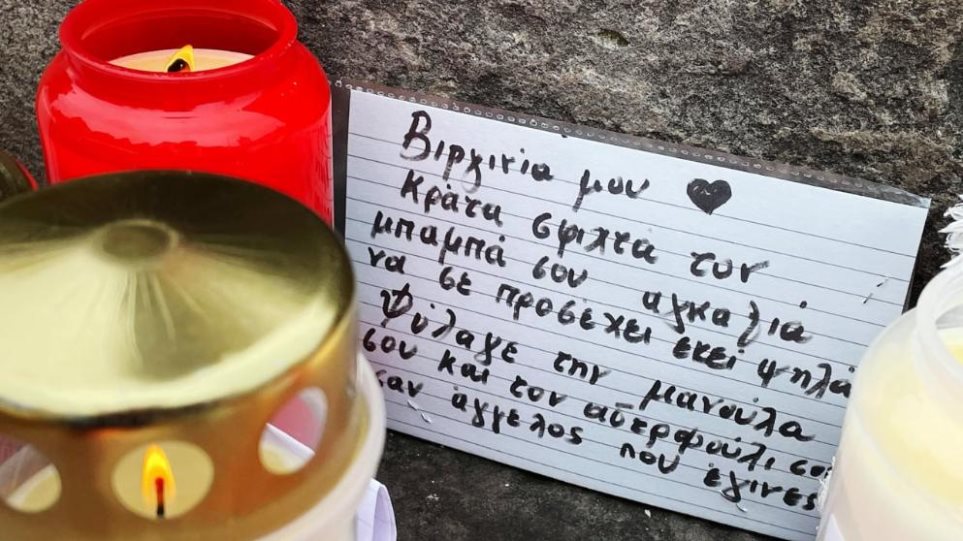 Βιργινία μου ♥
Κράτα σφιχτά τον
μπαμπά σου αγκαλιά
να σε προσέχει εκεί ψηλά
Φύλαγε την μανούλα
σου και τον αδερφούλι σου
σαν άγγελος που έγινες